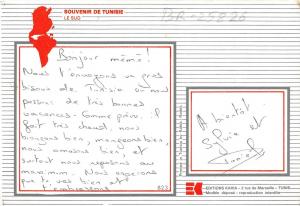 SOUVENIR DE TUNISIE
LE SUD
BR-25826
Bonjour mémé!
Nous t'envoyons un gros
bisous de Tunisie où nous
passons de très bonnes
vacances. Comme prévu il
fait très chaud, nous
bronzons bien, mangeons bien,
nous amusons bien et
surtout nous reposons au
maximum. Nous espérons
que tu vas bien et
t'embrassons
623
A bientôt
Sylvie et
EDITIONS KAHIA - 2 rue de Marseille - TUNIS
Modèle déposé - reproduction interdite